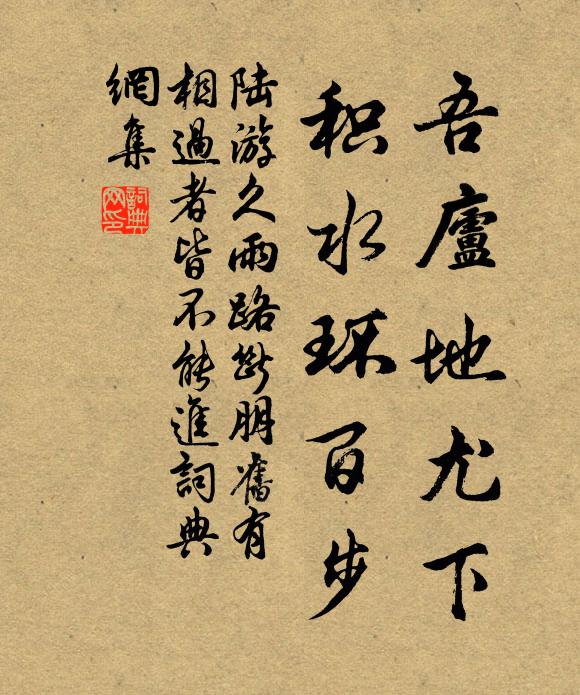 吾廬地尤下
积水环百步
陆游久雨路斷朋舊有
相過者皆不能進詞典
網集
詞典
网印